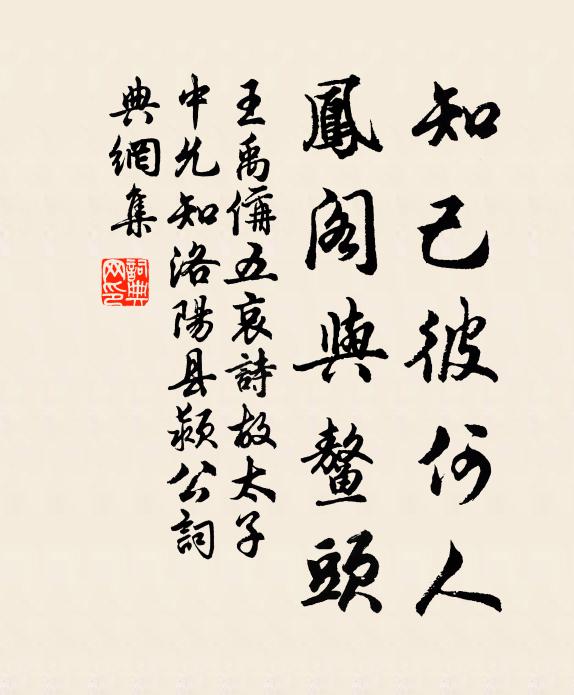 知己彼何人
鳳阁與鼇頭
王禹偁五哀詩故太子
中允知洛陽县颍公詞
典網集
詞典网印